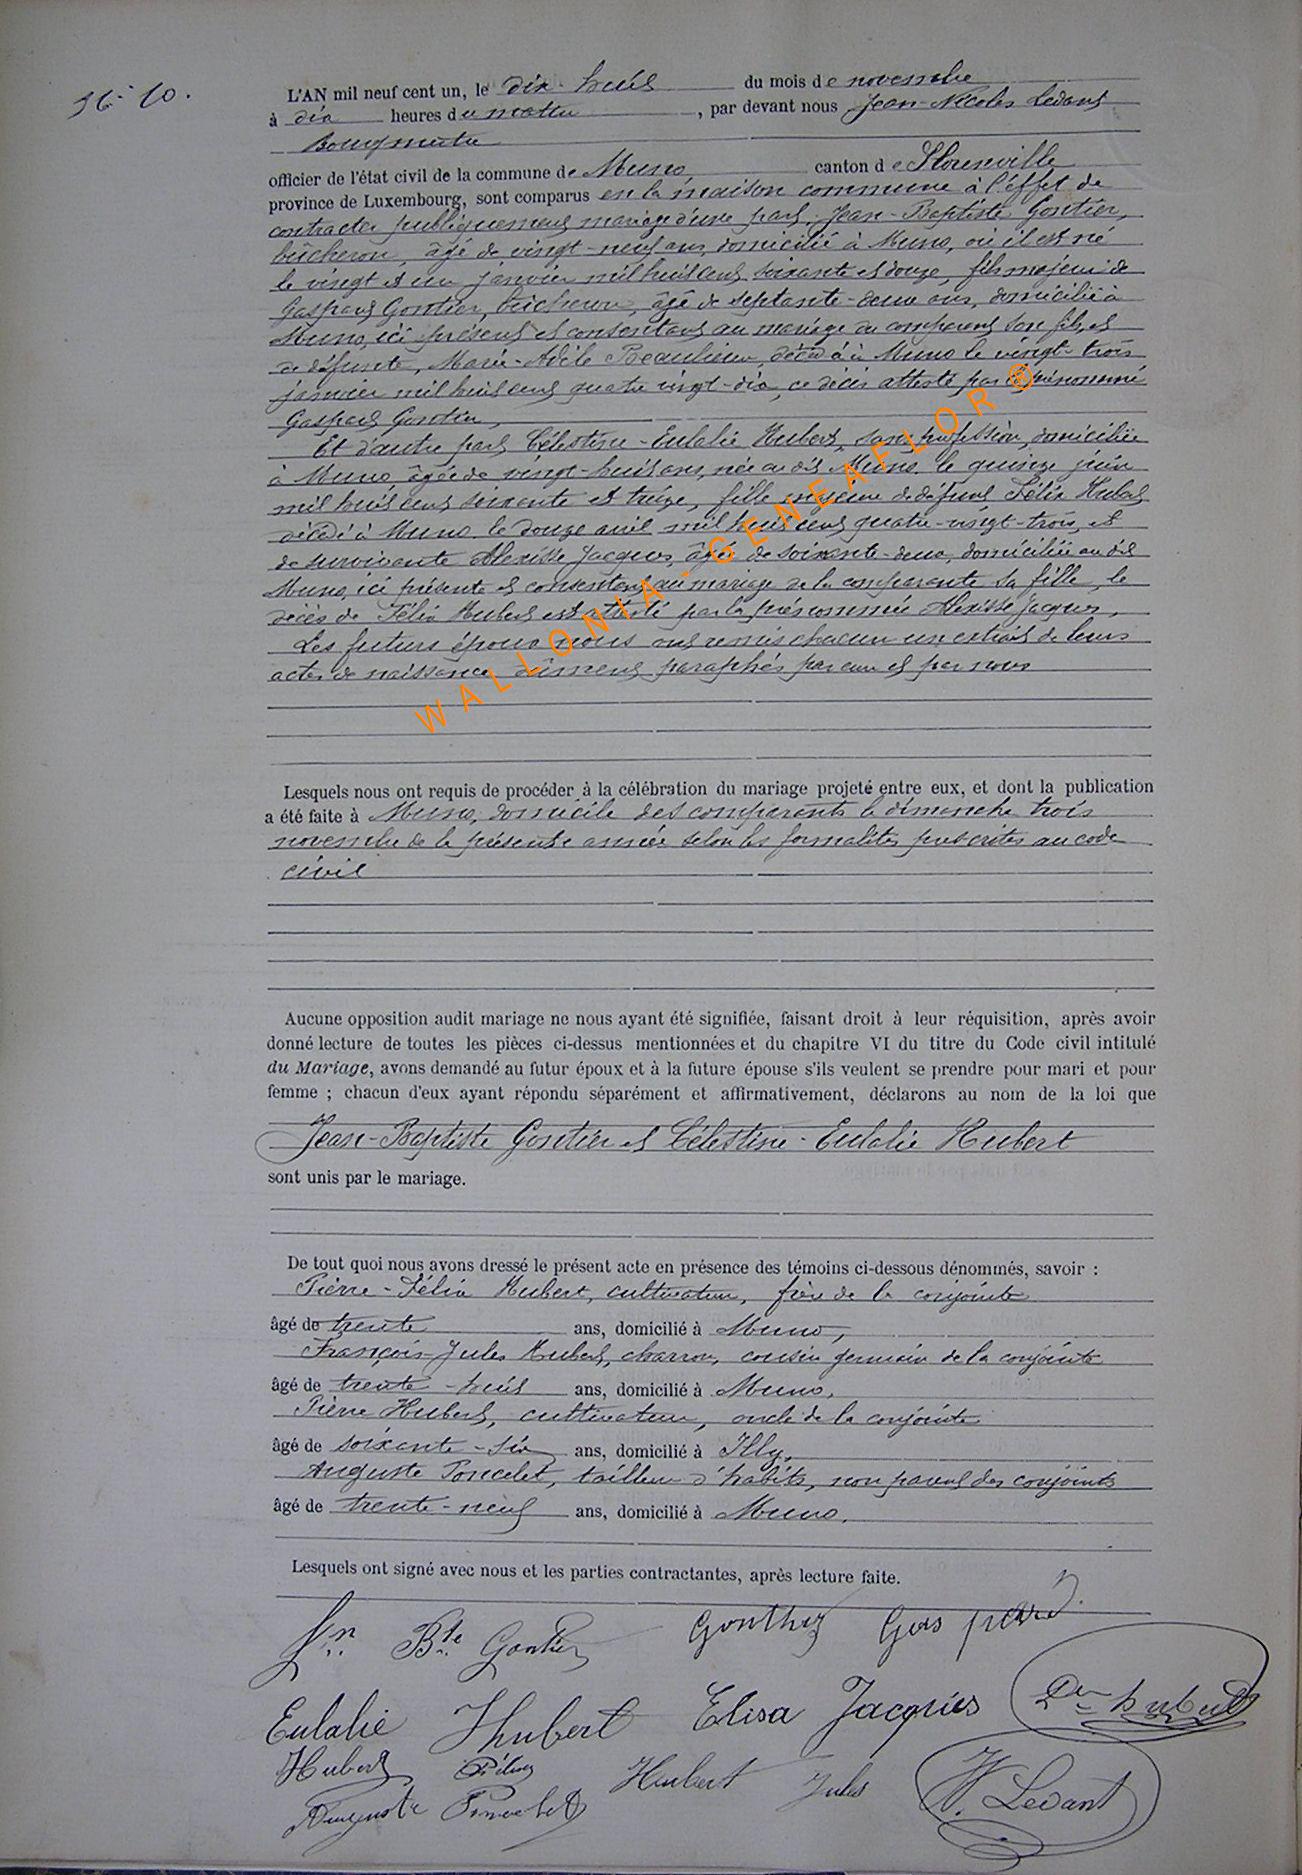 L'AN mil neuf cent un, le dix huit du mois de novembre
à dix heures du matin, par devant nous Jean-Nicolas Ledant
Bourgmestre
officier de l'état civil de la commune de Muno canton de Florenville
province de Luxembourg, sont comparus en la maison commune à l'effet de
contracter publiquement mariage d'une part, Jean-Baptiste Gontier,
bûcheron, âgé de vingt-neuf ans, domicilié à Muno, où il est né
le vingt et un janvier mil huit cent soixante et douze, fils majeur de
Gaspard Gontier, bûcheron, âgé de septante-deux ans, domicilié à
Muno, ici présent et consentant au mariage du comparant son fils, et
de défunte, Marie-Adèle Beaulieu, décédé à Muno le vingt-trois
janvier mil huit cent quatre vingt-dix, ce décès attesté par le prénommé
Gaspard Gontier,
Et d'autre part Célestine-Eulalie Hubert, sans profession, domiciliée
à Muno, âgée de vingt-huit ans, née au dit Muno, le quinze juin
mil huit cent soixante et treize, fille majeure de défunt Félix Hubert
décédé à Muno le douze avril mil huit cent quatre-vingt-trois, et
de survivante Alexisse Jacques, âgée de soixante-deux, domiciliée au dit
Muno, ici présente et consentant au mariage de la comparante sa fille, le
décès de Félix Hubert est attesté par la prénommée Alexisse Jacques,
Les futurs époux nous ont remis chacun un extrait de leurs
actes de naissance dûment paraphés par eux et par nous
WALLONIA-GENEAFLOR ®
Lesquels nous ont requis de procéder à la célébration du mariage projeté entre eux, et dont la publication
a été faite à Muno, domicile des comparants le dimanche trois
novembre de la présente année selon les formalités prescrites au code
civil
Aucune opposition audit mariage ne nous ayant été signifiée, faisant droit à leur réquisition, après avoir
donné lecture de toutes les pièces ci-dessus mentionnées et du chapitre VI du titre du Code civil intitulé
du Mariage, avons demandé au futur époux et à la future épouse s'ils veulent se prendre pour mari et pour
femme ; chacun d'eux ayant répondu séparément et affirmativement, déclarons au nom de la loi que
Jean-Baptiste Gontier et Célestine-Eulalie Hubert
sont unis par le mariage.
De tout quoi nous avons dressé le présent acte en présence des témoins ci-dessous dénommés, savoir :
Pierre-Félix Hubert, cultivateur, frère de la conjointe
âgé de trente ans, domicilié à Muno,
François-Jules Hubert, charron, cousin germain de la conjointe
âgé de trente-huit ans, domicilié à Muno,
Pierre Hubert, cultivateur, oncle de la conjointe
âgé de soixante-six ans, domicilié à Illy,
Auguste Poncelet, tailleur d'habits, non parent des conjoints
âgé de trente-neuf ans, domicilié à Muno.
Lesquels ont signé avec nous et les parties contractantes, après lecture faite.
Jn Bte Gontier Gonthez Gaspard
Eulalie Hubert Elisa Jacques hubert
Hubert Félix Hubert Jules N. Ledant
Auguste Poncelet